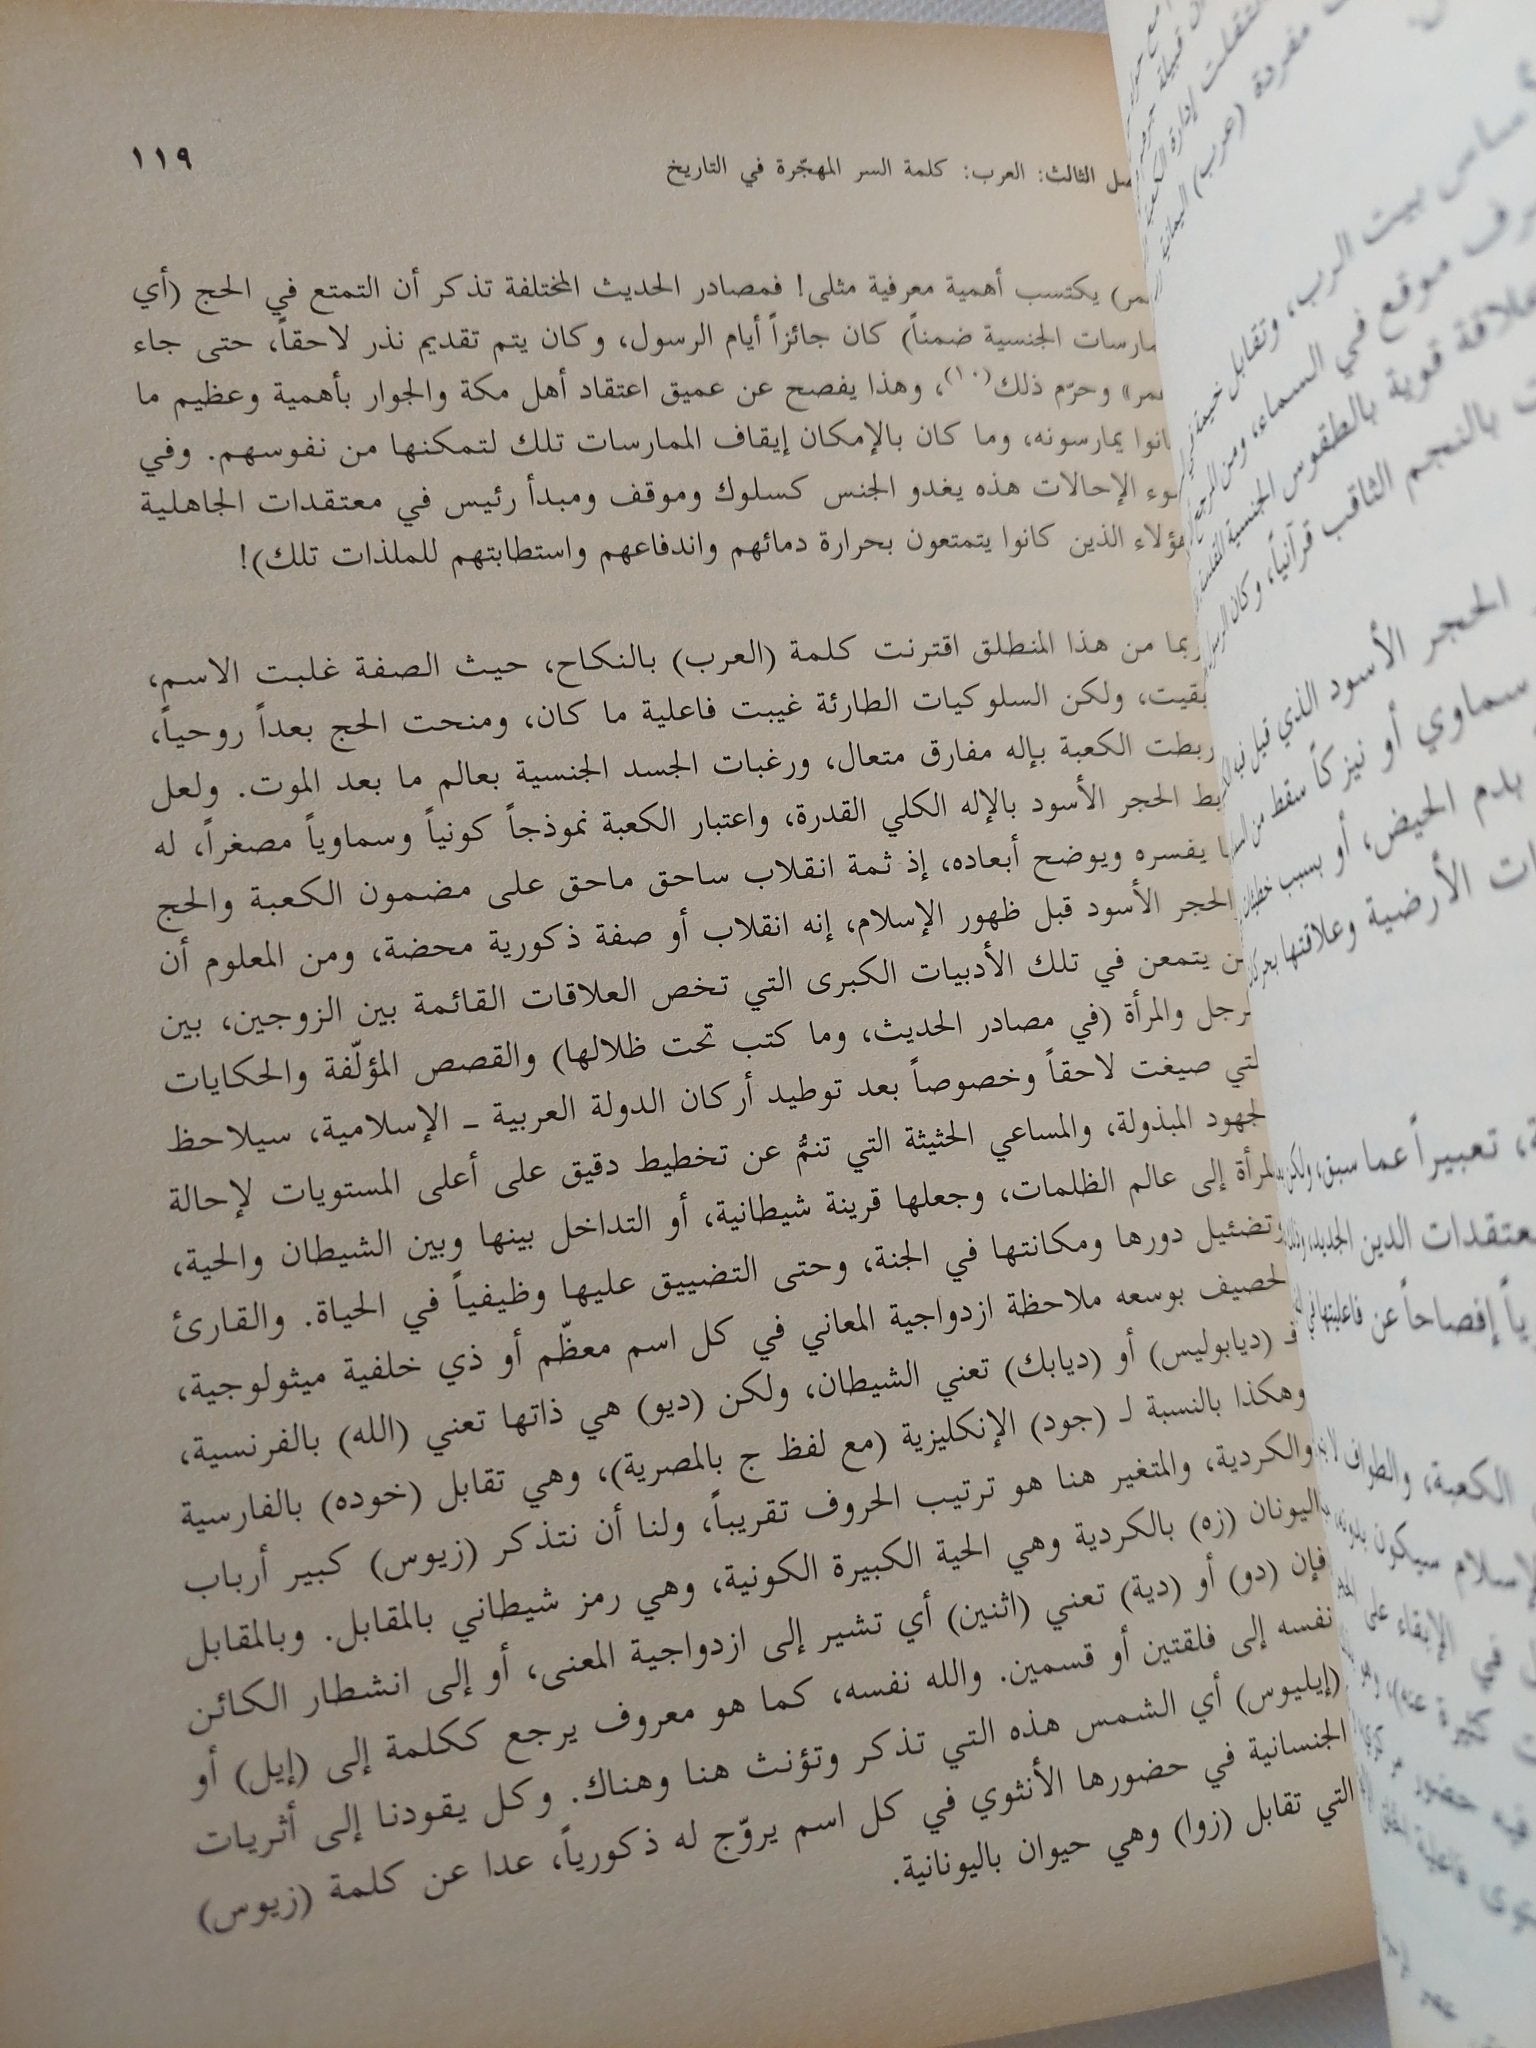 ١١٩
الثالث: العرب: كلمة السر المهجّرة في التاريخ
يكتسب أهمية معرفية مثلى! فمصادر الحديث المختلفة تذكر أن التمتع في الحج (أي
الجنسية ضمناً) كان جائزاً أيام الرسول، وكان يتم تقديم نذر لاحقاً، حتى جاء
وحرّم ذلك(١٠)، وهذا يفصح عن عميق اعتقاد أهل مكة والجوار بأهمية وعظيم ما
يمارسونه، وما كان بالإمكان إيقاف الممارسات تلك لتمكنها من نفوسهم. وفي
الإحالات هذه يغدو الجنس كسلوك وموقف ومبدأ رئيس في معتقدات الجاهلية
الذين كانوا يتمتعون بحرارة دمائهم واندفاعهم واستطابتهم للملذات تلك)!
من هذا المنطلق اقترنت كلمة (العرب) بالنكاح، حيث الصفة غلبت الاسم،
بقيت، ولكن السلوكيات الطارئة غيبت فاعلية ما كان، ومنحت الحج بعداً روحياً،
ربطت الكعبة بإله مفارق متعال، ورغبات الجسد الجنسية بعالم ما بعد الموت. ولعل
الحجر الأسود بالإله الكلي القدرة، واعتبار الكعبة نموذجاً كونياً وسماوياً مصغراً، له
يفسره ويوضح أبعاده، إذ ثمة انقلاب ساحق ماحق على مضمون الكعبة والحج
الحجر الأسود قبل ظهور الإسلام، إنه انقلاب أو صفة ذكورية محضة، ومن المعلوم أن
يتمعن في تلك الأدبيات الكبرى التي تخص العلاقات القائمة بين الزوجين، بين
والمرأة (في مصادر الحديث، وما كتب تحت ظلالها) والقصص المؤلّفة والحكايات
صيغت لاحقاً وخصوصاً بعد توطيد أركان الدولة العربية ـ الإسلامية، سيلاحظ
الجهود المبذولة، والمساعي الحثيثة التي تنمُّ عن تخطيط دقيق على أعلى المستويات لإحالة
المرأة إلى عالم الظلمات، وجعلها قرينة شيطانية، أو التداخل بينها وبين الشيطان والحية،
وتضئيل دورها ومكانتها في الجنة، وحتى التضييق عليها وظيفياً في الحياة. والقارئ
الحصيف بوسعه ملاحظة ازدواجية المعاني في كل اسم معظّم أو ذي خلفية ميثولوجية،
فـ (ديابوليس) أو (ديابك) تعني الشيطان، ولكن (ديو) هي ذاتها تعني (الله) بالفرنسية،
وهكذا بالنسبة لـ (جود) الإنكليزية (مع لفظ ج بالمصرية)، وهي تقابل (خوده) بالفارسية
والكردية، والمتغير هنا هو ترتيب الحروف تقريباً، ولنا أن نتذكر (زيوس) كبير أرباب
اليونان (زه) بالكردية وهي الحية الكبيرة الكونية، وهي رمز شيطاني بالمقابل. وبالمقابل
فإن (دو) أو (دية) تعني (اثنين) أي تشير إلى ازدواجية المعنى، أو إلى انشطار الكائن
نفسه إلى فلقتين أو قسمين. والله نفسه، كما هو معروف يرجع ككلمة إلى (إيل) أو
(إيليوس) أي الشمس هذه التي تذكر وتؤنث هنا وهناك. وكل يقودنا إلى أثريات
الجنسانية في حضورها الأنثوي في كل اسم يروّج له ذكورياً، عدا عن كلمة (زيوس)
التي تقابل (زوا) وهي حيوان باليونانية.
أساس بيت الرب، وتقابل
موقع في السماء، ومن
علاقة قوية بالطقوس الجنسية
بالنجم الثاقب قرآنياً، وكان
الحجر الأسود الذي قيل
سماوي أو نيزكاً سقط من
بدم الحيض، أو بسبب
الأرضية وعلاقتها
تعبيراً عما سبق، ولكن
معتقدات الدين الجديد،
إفصاحاً عن فاعليتها في
الكعبة، والطواف
سيكون بدونه
في الإبقاء على